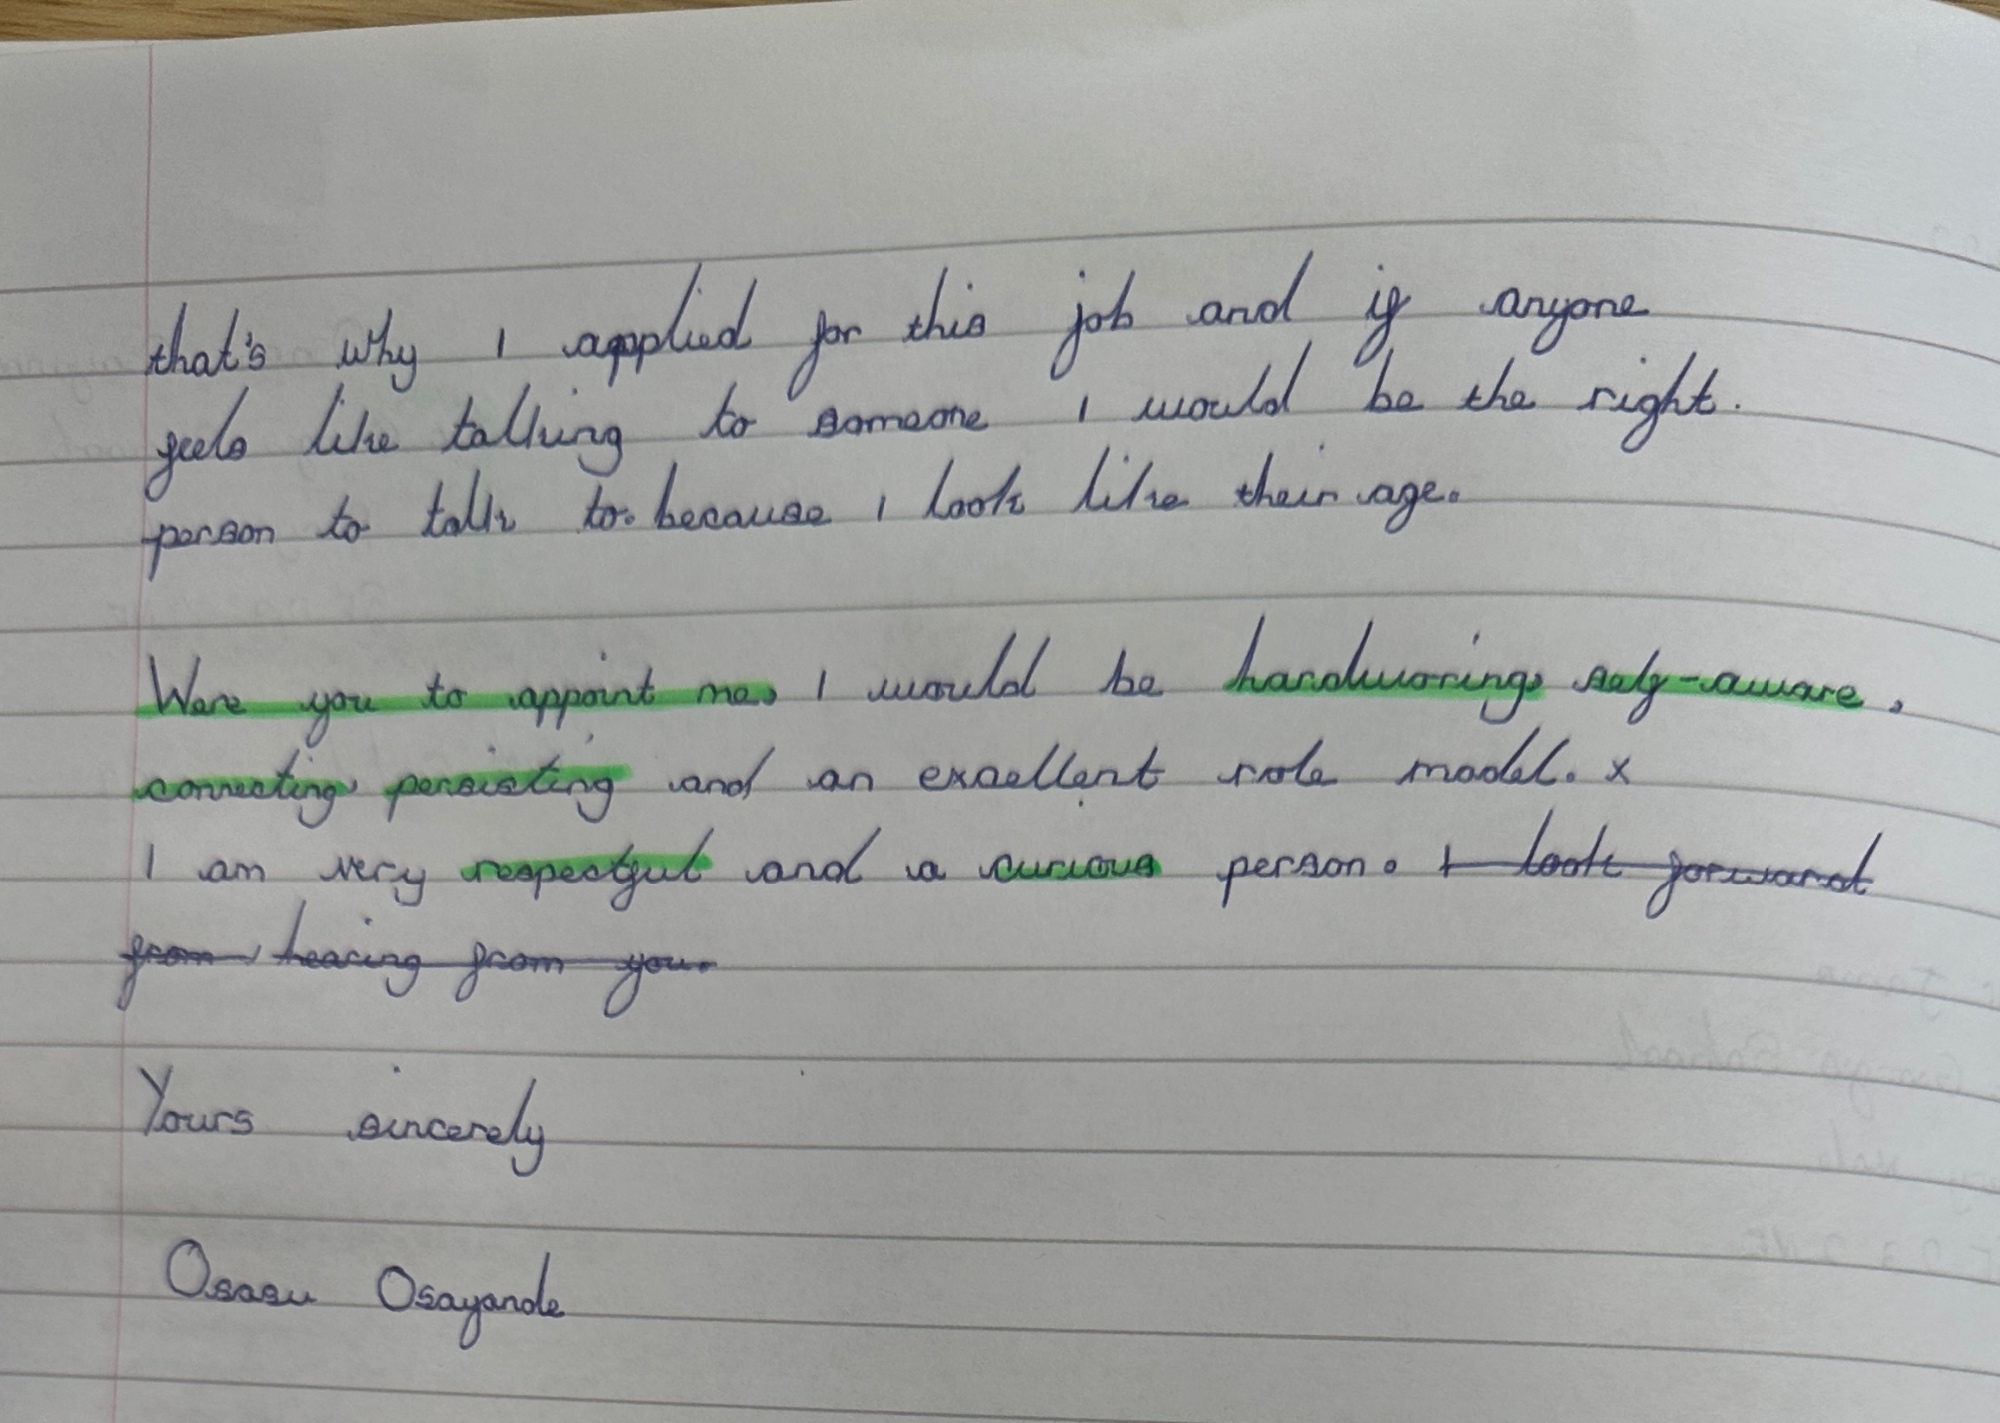 that's why I applied for this job and if anyone
feels like talking to someone I would be the right.
person to talk to. because I look like their age.
Were you to appoint me, I would be hardworing, self-aware,
connecting, persisting and an excellent role model. x
I am very respectful and a curious person. I look forward
from hearing from you.
Yours sincerely
Osasu Osayande